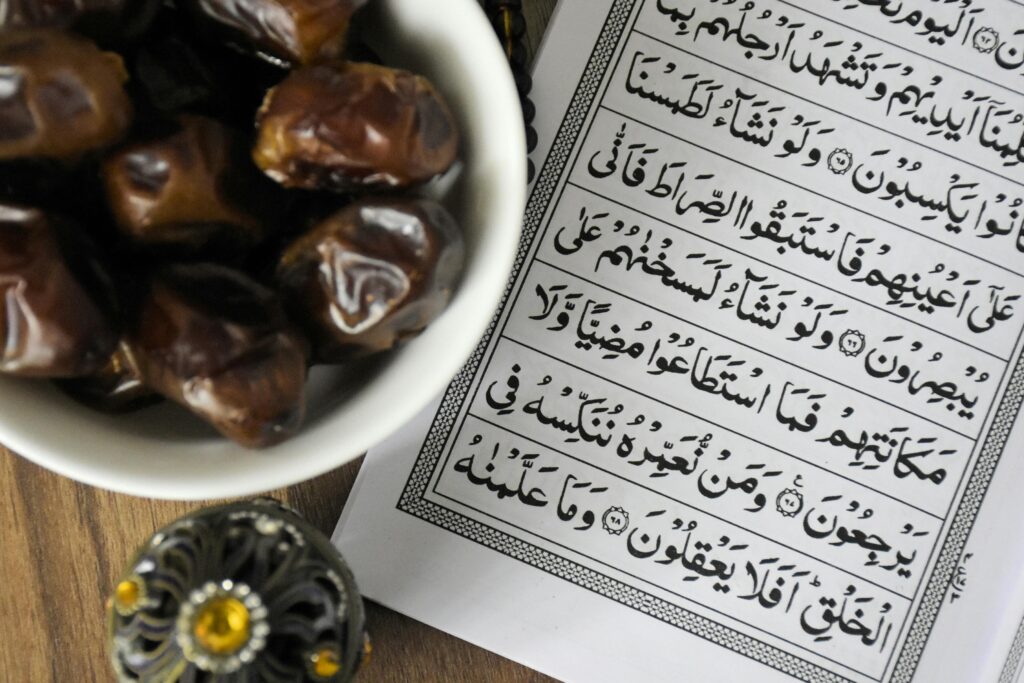 اَلْيَوْمَ
اَيْدِيْهِمْ وَتَشْهَدُ اَرْجُلُهُمْ بِمَا
كَانُوْا يَكْسِبُوْنَ ۶۵ وَلَوْ نَشَآءُ لَطَمَسْنَا
عَلٰۤى اَعْيُنِهِمْ فَاسْتَبَقُوا الصِّرَاطَ فَاَنّٰى
يُبْصِرُوْنَ ۶۶ وَلَوْ نَشَآءُ لَمَسَخْنٰهُمْ عَلٰى
مَكَانَتِهِمْ فَمَا اسْتَطَاعُوْا مُضِيًّا وَّلَا
يَرْجِعُوْنَ ۶۷ وَمَنْ نُّعَمِّرْهُ نُنَكِّسْهُ فِى
الْخَلْقِ ؕ اَفَلَا يَعْقِلُوْنَ ۶۸ وَمَا عَلَّمْنٰهُ